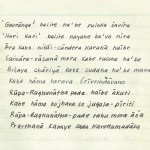 'Gaurāṅga' balite ha'be pulaka śarīra
'Hari Hari' balite nayane ba've nīra
Āra kabe nitāi-cāndera karuṇā haibe
Saṁsāra-vāsanā mora kabe tuccha ha'be
Biṣaya chāriyā kabe śuddha ha'be mana
Kabe hāma heraba Śrīvṛndāvana
Rūpa-Raghunātha pade haibe ākuti
Kabe hāma bujhaba se jugala-pīriti
Rūpa-Raghunātha-pade rahu mora āśa
Prārthanā karaye sadā Narottamadāsa